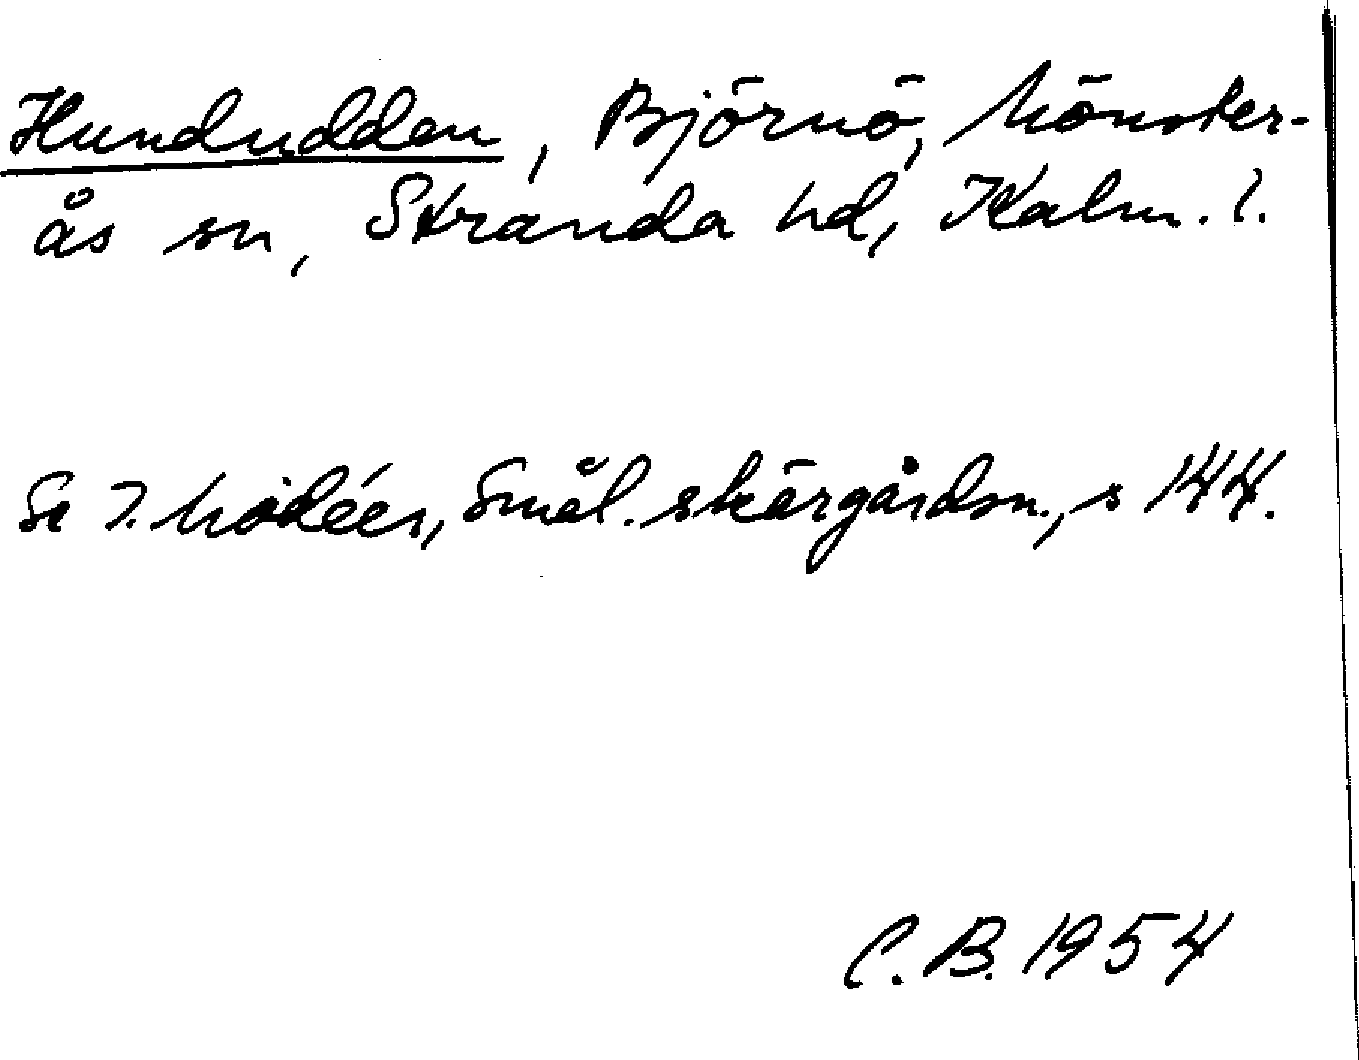 Hundudden, Björnö, Mönster-
ås sn, Stranda hd, Kalm. l.
Se I. Modéer, Smål. skärgårdsn., s 144.
C. B. 1954